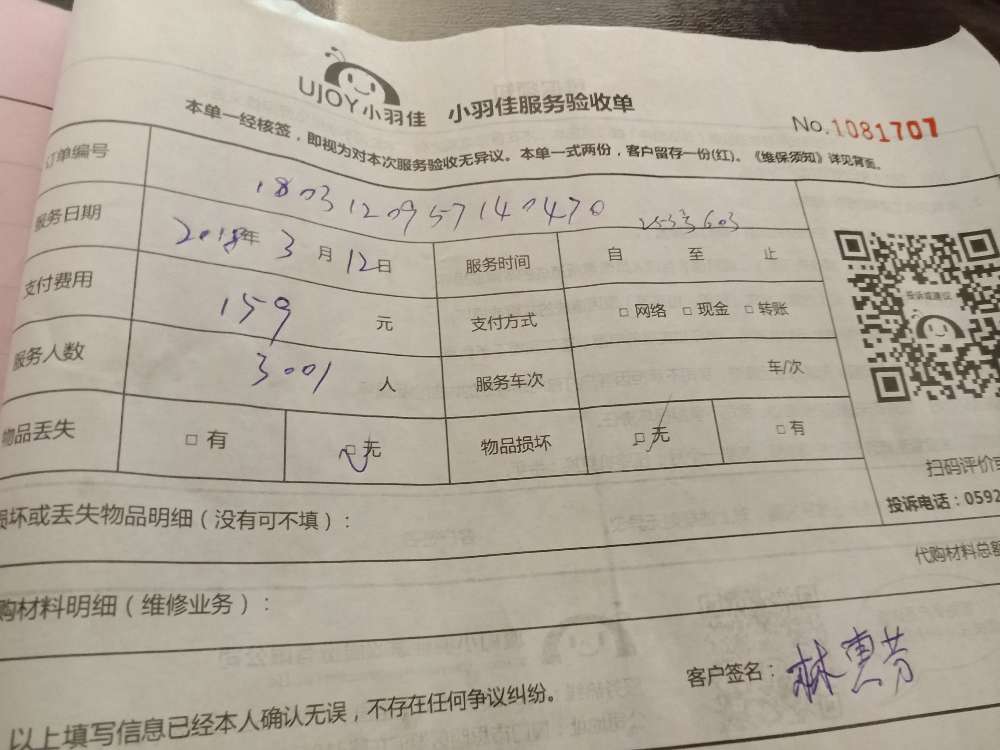 UJOY小羽佳 小羽佳服务验收单
No.1081707
本单一经核签，即视为对本次服务验收无异议。本单一式两份，客户留存一份(红)。《维保须知》详见背面。
订单编号 1803120957140470
服务日期 2018年3月12日 服务时间 自 至 止
支付费用 159 元 支付方式 □ 网络 □ 现金 □ 转账
服务人数 3001 人 服务车次 车/次
物品丢失 □ 有 □ 无 物品损坏 □ 无 □ 有
投诉或建议
扫码评价
投诉电话：0592
损坏或丢失物品明细（没有可不填）：
代购材料总额
购材料明细（维修业务）：
客户签名：林惠芳
以上填写信息已经本人确认无误，不存在任何争议纠纷。